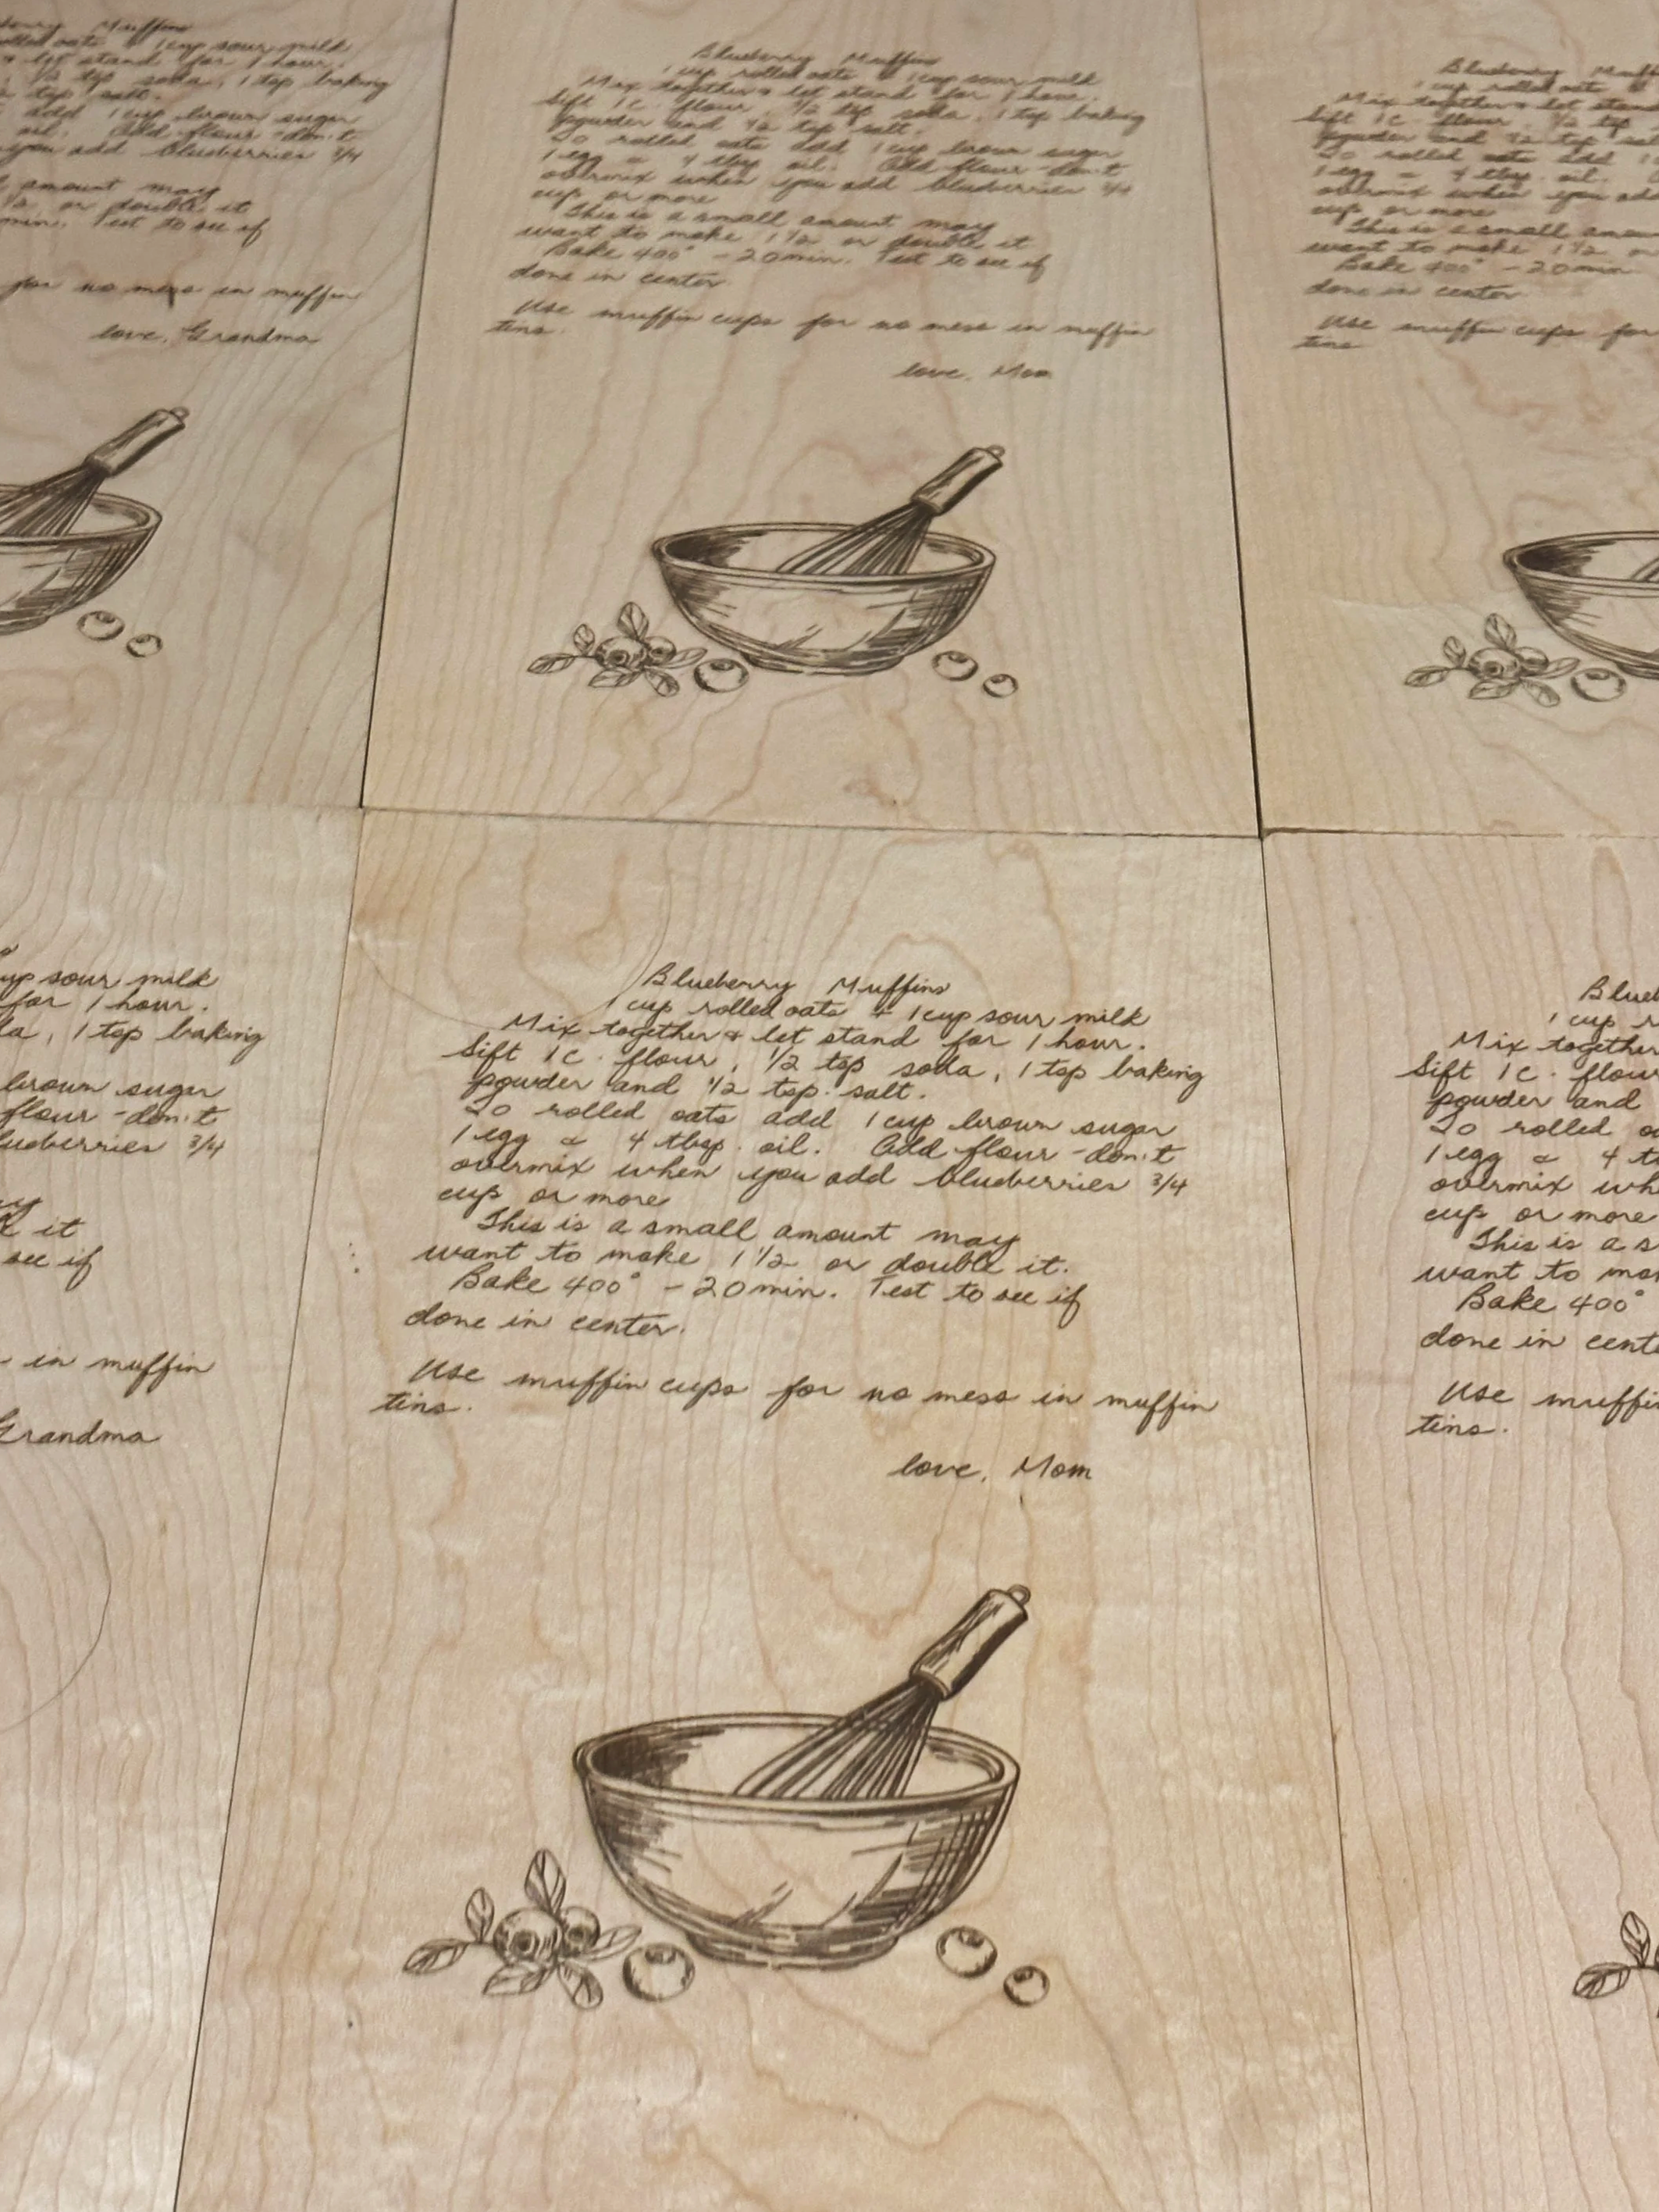 Blueberry Muffins
rolled oats + 1 cup sour milk
let stand for 1 hour.
1/2 tsp soda, 1 tsp baking
tsp salt.
add 1 cup brown sugar
oil. Add flour - don't
you add blueberries 3/4
amount may
1/2 or double it
min. Test to see if
for no mess in muffin
love, Grandma
Blueberry Muffins
1 cup rolled oats + 1 cup sour milk
Mix together & let stand for 1 hour.
Sift 1 c. flour, 1/2 tsp soda, 1 tsp baking
powder and 1/2 tsp salt.
To rolled oats add 1 cup brown sugar
1 egg & 4 tbsp oil. Add flour - don't
overmix when you add blueberries 3/4
cup or more
This is a small amount may
want to make 1 1/2 or double it
Bake 400° - 20 min. Test to see if
done in center
Use muffin cups for no mess in muffin
tins.
love, Mom
Blueberry
1 cup rolled oats
Mix together & let stand
Sift 1 c flour 1/2 tsp
powder and 1/2 tsp
To rolled oats add
1 egg & 4 tbsp. oil.
overmix when you add
cup or more
This is a small
want to make 1 1/2 or
Bake 400° - 20 min
done in center
Use muffin cups for
tins
cup sour milk
for 1 hour.
1 tsp baking
brown sugar
flour - don't
blueberries 3/4
it
see if
in muffin
Grandma
Blueberry Muffins
1 cup rolled oats + 1 cup sour milk
Mix together & let stand for 1 hour.
Sift 1 c. flour, 1/2 tsp soda, 1 tsp baking
powder and 1/2 tsp. salt.
To rolled oats add 1 cup brown sugar
1 egg & 4 tbsp. oil. Add flour - don't
overmix when you add blueberries 3/4
cup or more
This is a small amount may
want to make 1 1/2 or double it.
Bake 400° - 20 min. Test to see if
done in center.
Use muffin cups for no mess in muffin
tins.
love, Mom
1 cup
Mix together
Sift 1 c. flour
powder and
To rolled
1 egg & 4
overmix
cup or more
This is a
want to
Bake 400°
done in
Use
tins.